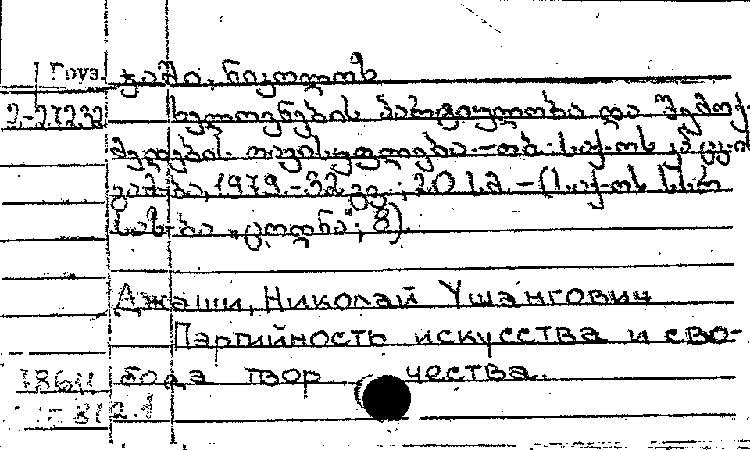 Груз. ჯაში, ნიკოლოზ
2-27232 ხელოვნების პარტიულობა და შემოქ
მედების თავისუფლება.-თბ.: საქ-ოს კპ ცკ-ის
გამ-ბა, 1979.-32 გვ.; 20 სმ.-(საქ-ოს სსრ
საზ-ბა „ცოდნა“; 8).
Джаши, Николай Ушангович
Партийность искусства и сво-
бода твор чества.